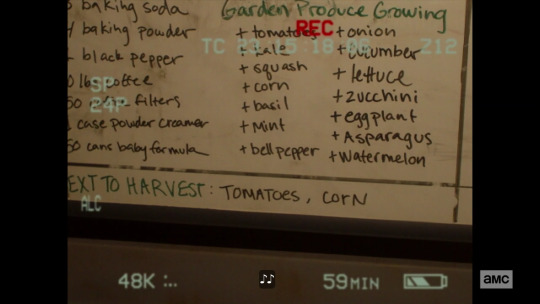 baking soda
baking powder
black pepper
coffee
filters
case powder creamer
50 cans baby formula
Garden Produce Growing
+ tomatoes
+ kale
+ squash
+ corn
+ basil
+ Mint
+ bell pepper
+ onion
+ cucumber
+ lettuce
+ zucchini
+ eggplant
+ Asparagus
+ Watermelon
EXT TO HARVEST: TOMATOES, CORN
REC
TC 23
Z12
SP
24P
ALC
48K
59MIN
amc